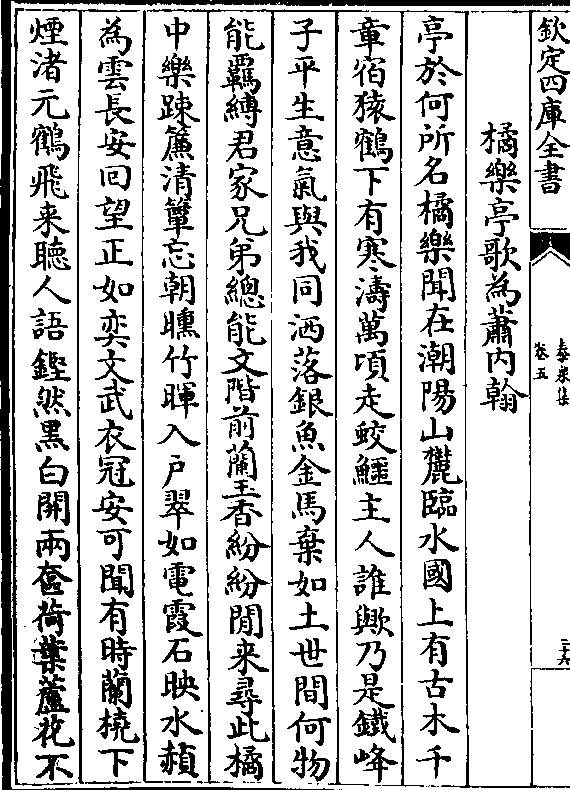 欽定四庫全書
泰泉集
卷五
二十六
橘樂亭歌為蕭內翰
亭於何所名橘樂聞在潮陽山麓臨水國上有古木千
章宿猿鶴下有寒濤萬頃走蛟鱷主人誰歟乃是鐵峰
子平生意氣與我同洒落銀魚金馬棄如土世間何物
能羈縛君家兄弟總能文階前蘭玉香紛紛閒来尋此橘
中樂疎簾清簟忘朝曛竹暉入户翠如電霞石映水赬
為雲長安回望正如奕文武衣冠安可聞有時蘭橈下
煙渚元鶴飛来聽人語鏗然黑白開兩奩荷葉蘆花不